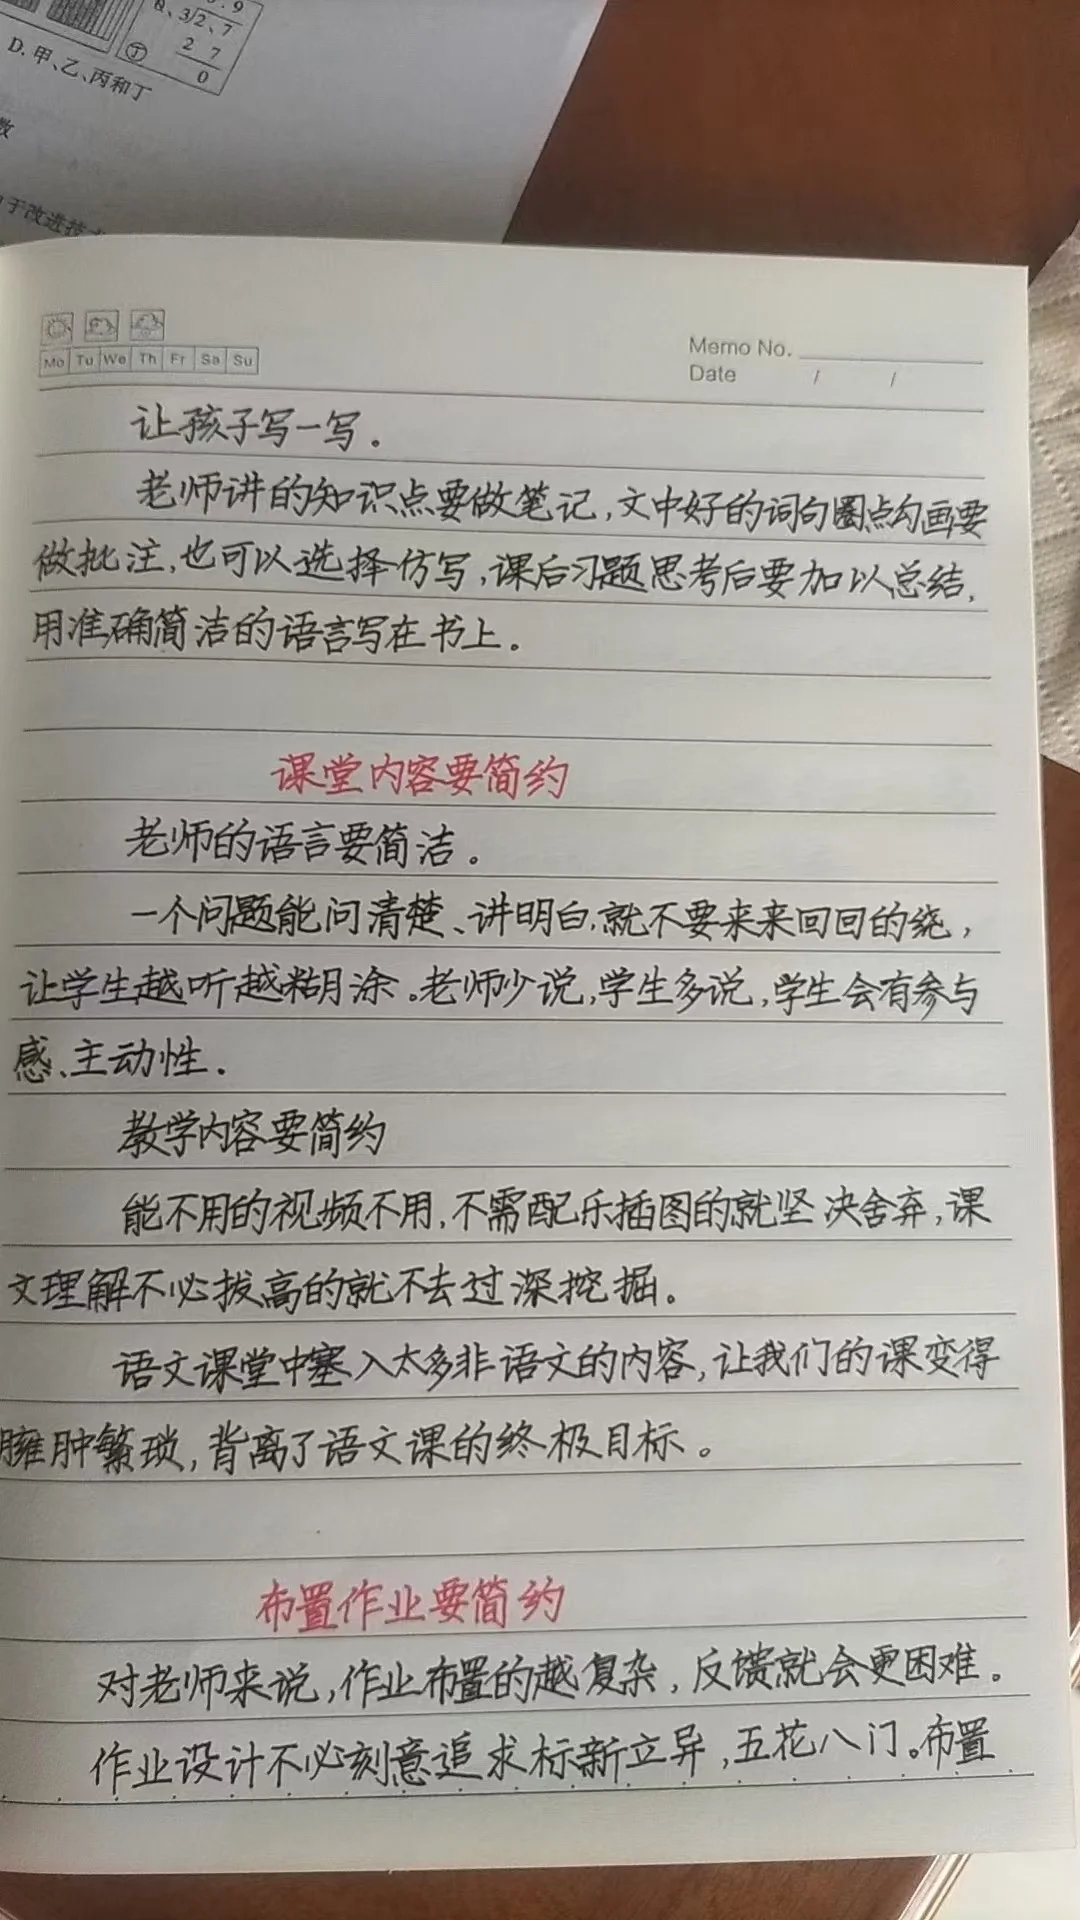 3/2、7
2 7
0
丁
D. 甲、乙、丙和丁
数
于改进技
Mo Tu We Th Fr Sa Su
Memo No.
Date / /
让孩子写一写。
老师讲的知识点要做笔记,文中好的词句圈点勾画要
做批注,也可以选择仿写,课后习题思考后要加以总结,
用准确简洁的语言写在书上。
课堂内容要简约
老师的语言要简洁。
一个问题能问清楚、讲明白,就不要来来回回的绕,
让学生越听越糊涂。老师少说,学生多说,学生会有参与
感、主动性。
教学内容要简约
能不用的视频不用,不需配乐插图的就坚决舍弃,课
文理解不必拔高的就不去过深挖掘。
语文课堂中塞入太多非语文的内容,让我们的课变得
臃肿繁琐,背离了语文课的终极目标。
布置作业要简约
对老师来说,作业布置的越复杂,反馈就会更困难。
作业设计不必刻意追求标新立异,五花八门。布置